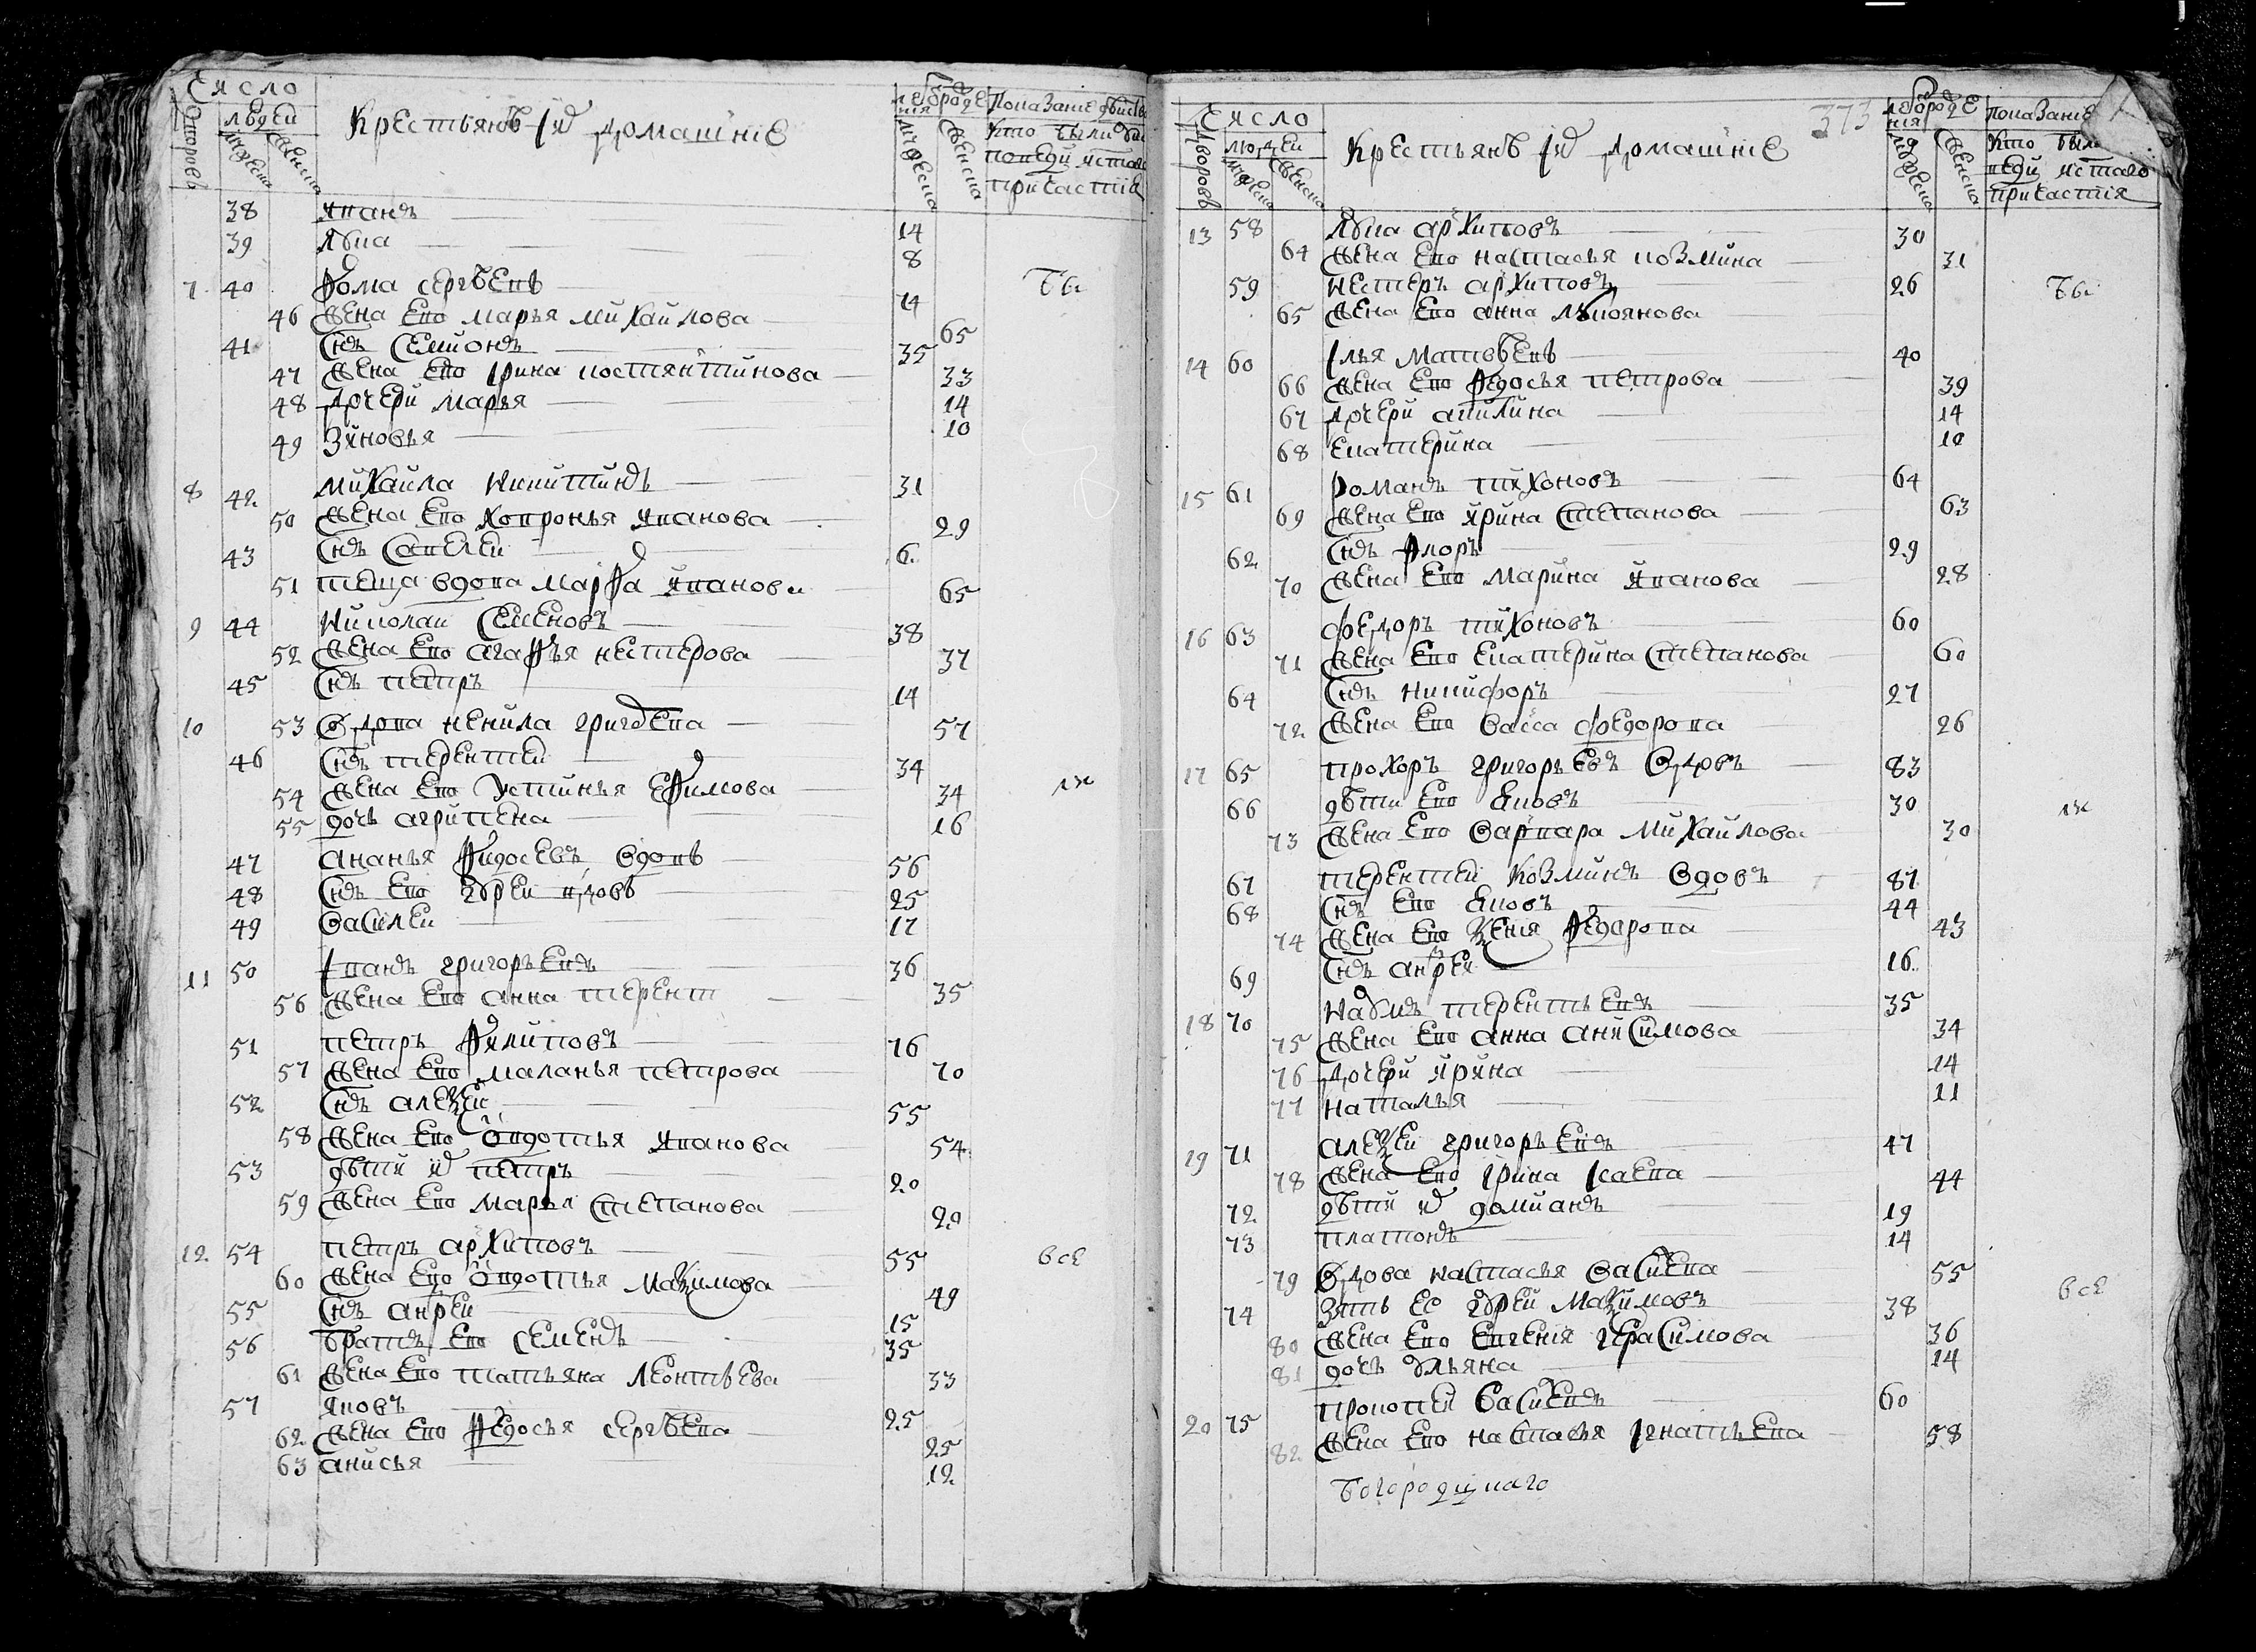 Число
людей
дворовъ
мужеска
женска
Крестьянѣ и домашнїе
лета ѿ рождения
мужеска
женска
показанїе дѣйства
кто были
исповеди и стаго
причастїя
38 Иванъ 14
39 Яковъ 8
7 40 Фома сергѣевъ 74 бы
46 жена ево марья михаилова 65
41 Снъ семионъ 35
47 жена ево Ірина костянтинова 33
48 дочери марья 14
49 Зиновья 10
8 42 михаила никитинъ 31
50 жена ево ховронья иванова 29
43 Снъ савелеи 6
51 теща вдова марфа иванова 65
9 44 николаи семеновъ 38
52 жена ево агафья нестерова 37
45 Снъ петръ 14
10 53 вдова ненила григорева 57
46 Снъ терентеи 34
54 жена ево устинья ефимова 34
55 дочь агрипена 16
47 ананья федосеевъ вдовъ 56
48 Снъ ево андреи вдовъ 25
49 василеи 17
11 50 Іванъ григорьевъ 36
56 жена ево анна терент 35
51 петръ филиповъ 76
57 жена ево маланья петрова 70
52 Снъ алеѯеи 55
58 жена ево овдотья иванова 54
53 дѣти их петръ 20
59 жена ево марья степанова 20
12 54 петръ архиповъ 55 все
60 жена ево овдотья маѯимова 49
55 Снъ андреи 15
56 братъ ево семенъ 35
61 жена ево татьяна леонтьева 33
57 яковъ 25
62 жена ево федосья сергѣева 25
63 анисья 12
373
Число
людей
дворовъ
мужеска
женска
Крестьянѣ и домашнїе
лета ѿ рождения
мужеска
женска
показанїе
кто были
причастїя
13 58 архиповъ 30
64 жена ево настасья козмина 31
59 нестеръ архиповъ 26 бы
65 жена ево анна лукоянова
14 60 Ілья матвѣевъ 40
66 жена ево федосья петрова 39
67 дочери акилина 14
68 екатерина 10
15 61 романъ тихоновъ 64
69 жена ево ирина степанова 63
62 Снъ флоръ 29
70 жена ево марина иванова 28
16 63 федоръ тихоновъ 60
71 жена ево екатерина степанова 60
64 Снъ никифоръ 27
72 жена ево васса федорова 26
17 65 прохоръ григорьевъ вдовъ 83
66 дѣти ево яковъ 30
73 жена ево варвара михаилова 30
67 терентеи козминъ вдовъ 87
68 Снъ ево яковъ 44
74 жена ево ѯенїя федорова 43
69 Снъ андреи 16
18 70 терентьевъ 35
75 жена ево анна анисимова 34
76 дочери ирина 14
77 наталья 11
19 71 алеѯеи григорьевъ 47
78 жена ево Ірина Ісаева 44
72 дѣти их домианъ 19
73 платонъ 14
79 вдова настасья василева 55 все
74 зять ее андреи маѯимовъ 38
80 жена ево евгения герасимова 36
81 дочь ульяна 14
20 75 прокопеи василевъ 60
82 жена ево настасья Ігнатьева 58
богородицкаго